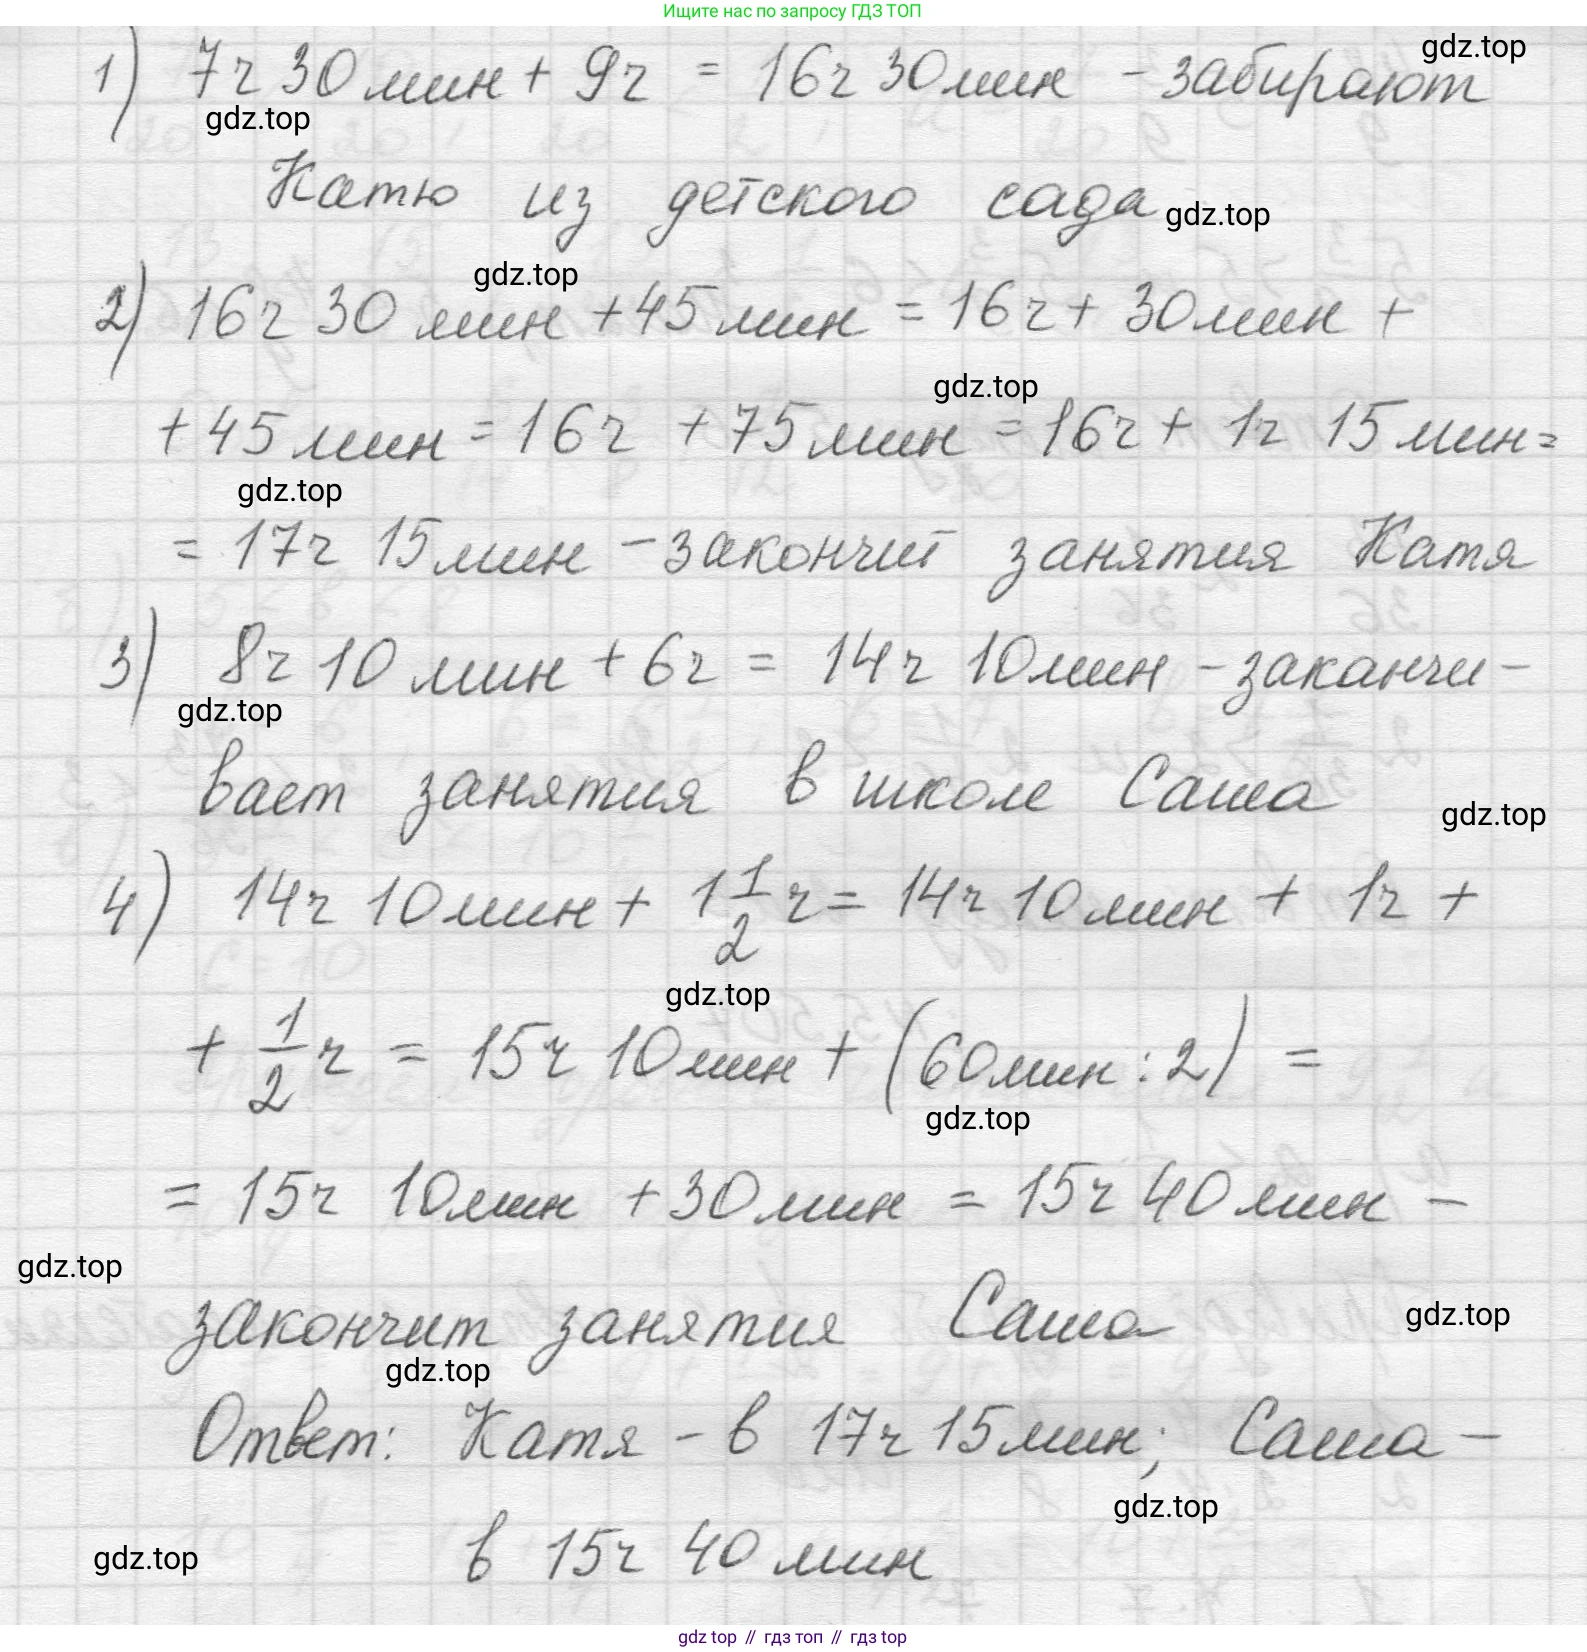 Ищите нас по запросу ГДЗ ТОП
gdz.top
1) 7ч 30 мин + 9ч = 16ч 30 мин - забирают
gdz.top
Катю из детского сада
gdz.top
gdz.top
2) 16ч 30 мин + 45 мин = 16ч + 30 мин +
gdz.top
+ 45 мин = 16ч + 75 мин = 16ч + 1ч 15 мин =
gdz.top
= 17ч 15 мин - закончит занятия Катя
3) 8ч 10 мин + 6ч = 14ч 10 мин - заканчи-
gdz.top
вает занятия в школе Саша
gdz.top
4) 14ч 10 мин + 1 1/2 ч = 14ч 10 мин + 1ч +
gdz.top
+ 1/2 ч = 15ч 10 мин + (60 мин : 2) =
gdz.top
= 15ч 10 мин + 30 мин = 15ч 40 мин -
gdz.top
закончит занятия Саша
gdz.top
gdz.top
Ответ: Катя - в 17ч 15 мин; Саша -
gdz.top
в 15ч 40 мин
gdz.top
gdz top // гдз топ // гдз top